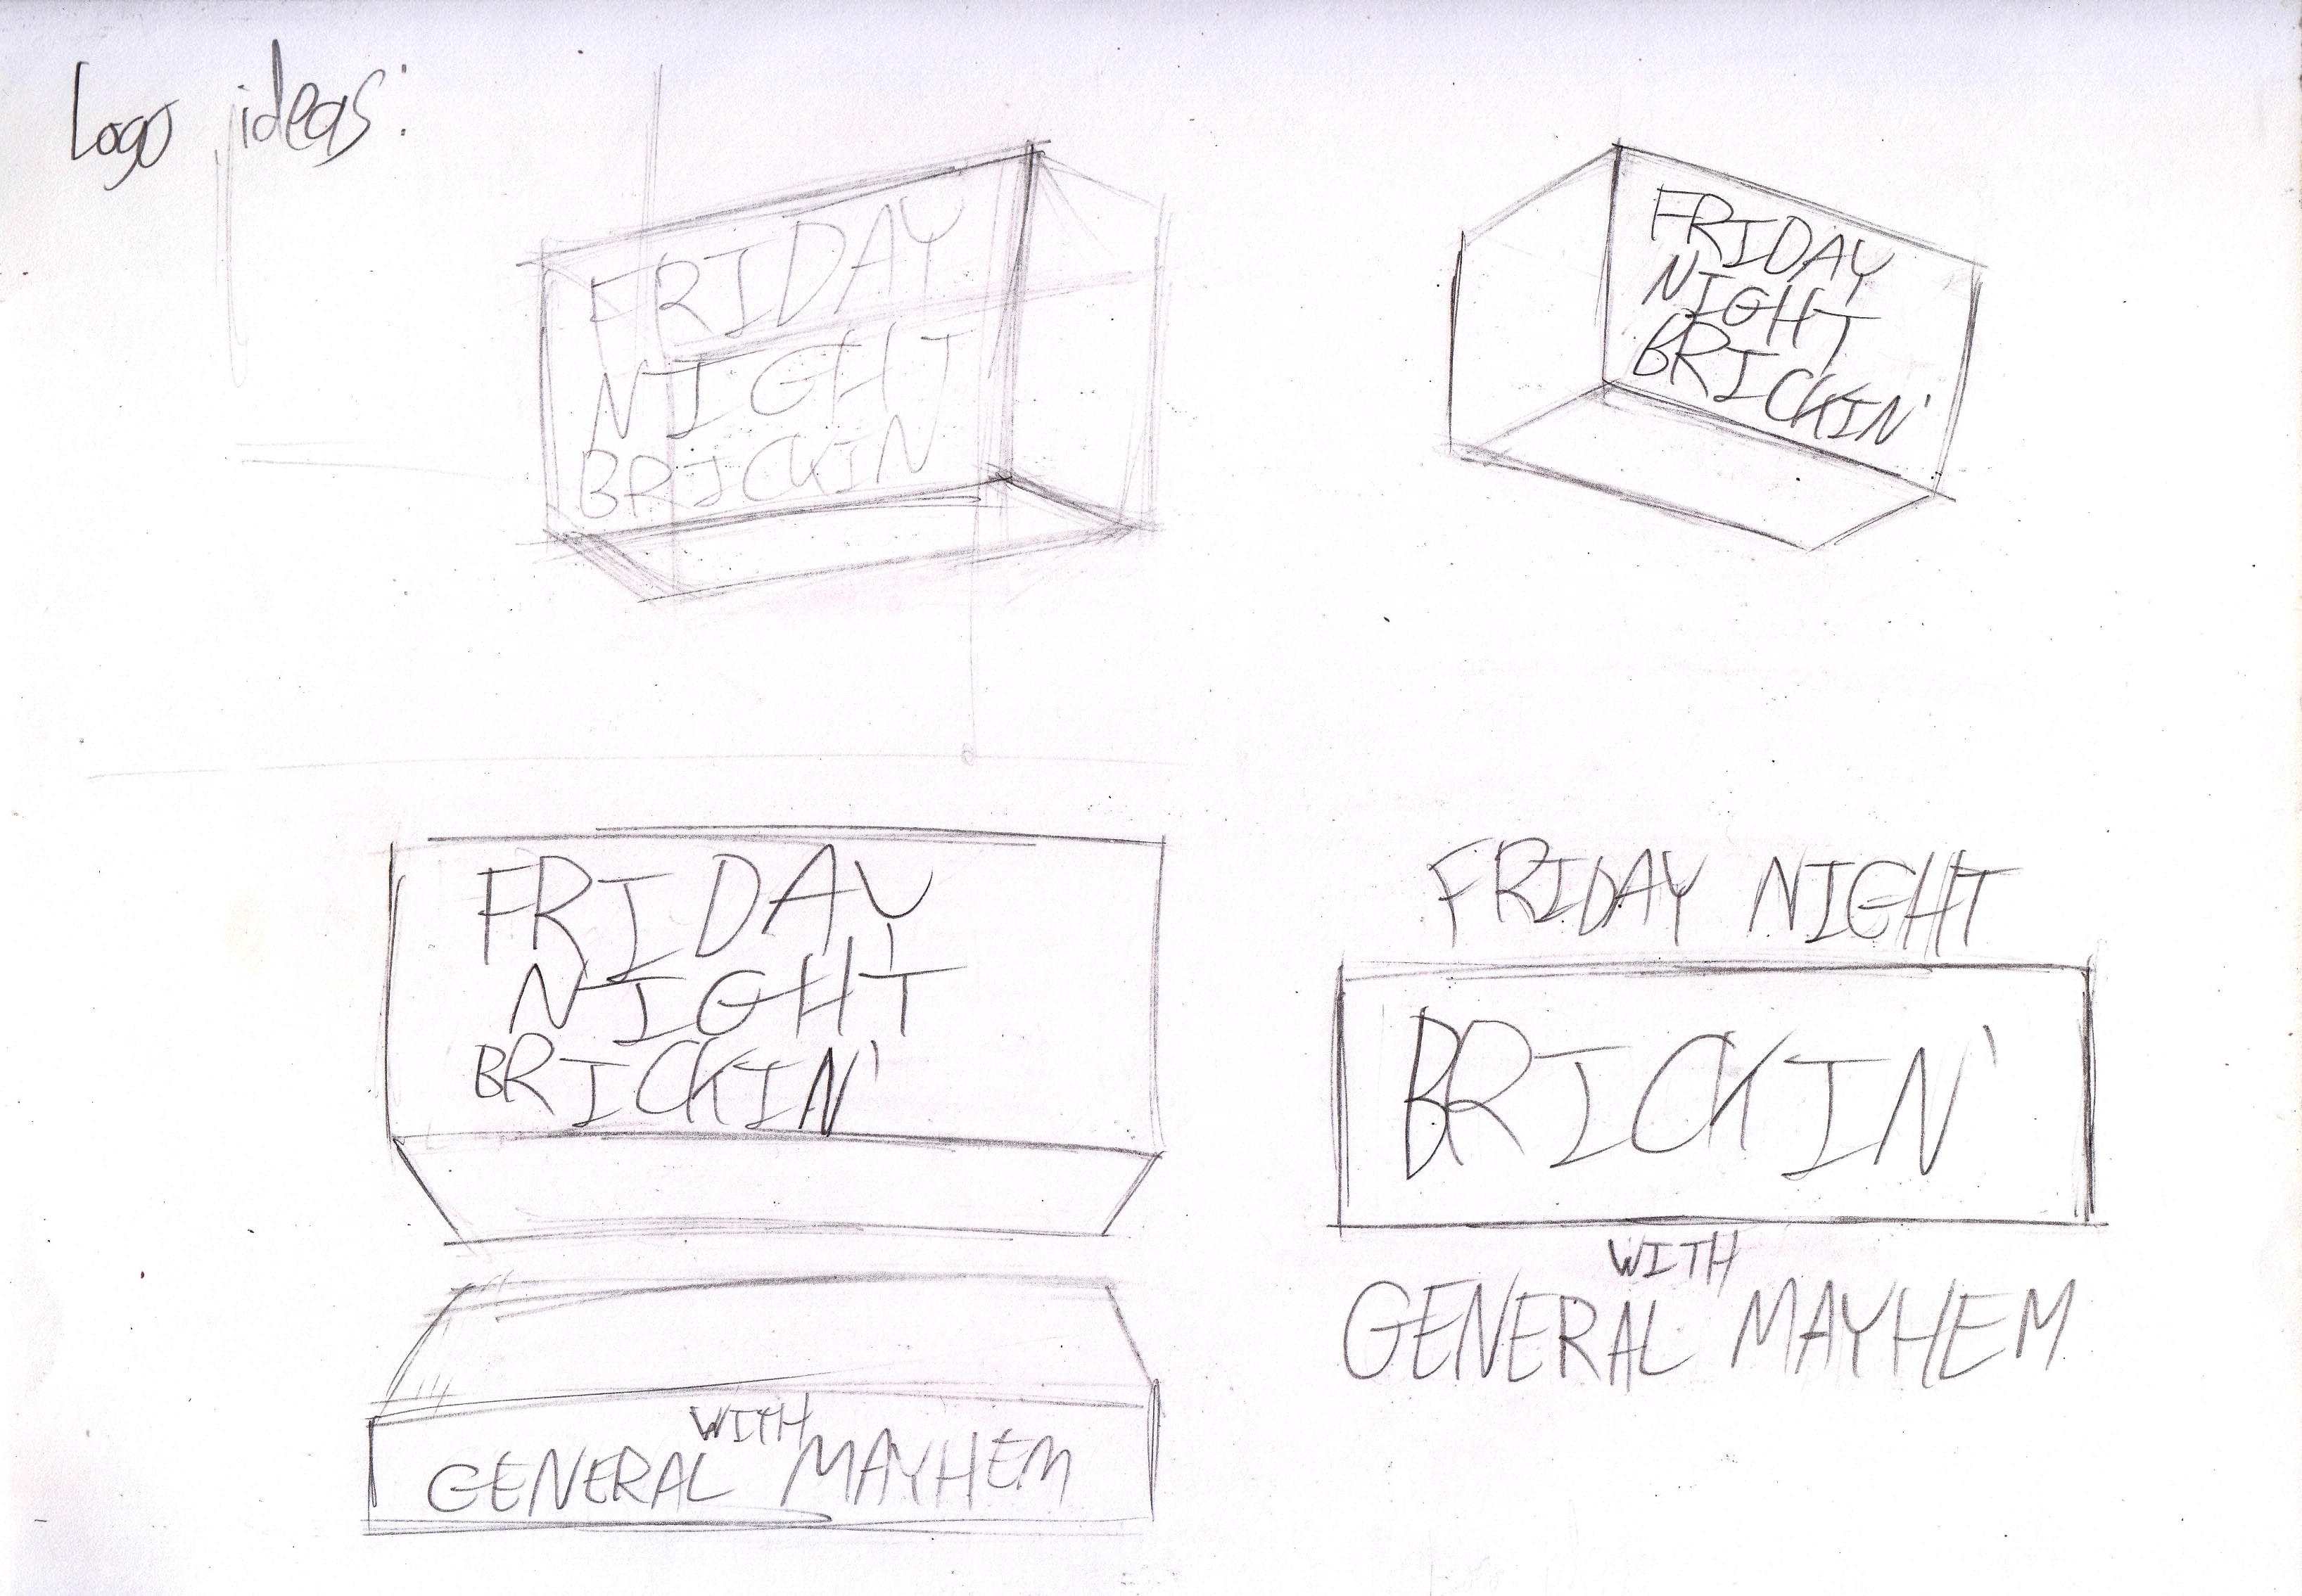 Logo ideas:
FRIDAY
NIGHT
BRICKIN
FRIDAY
NIGHT
BRICKIN'
FRIDAY
NIGHT
BRICKIN'
WITH
GENERAL MAYHEM
FRIDAY NIGHT
BRICKIN'
WITH
GENERAL MAYHEM